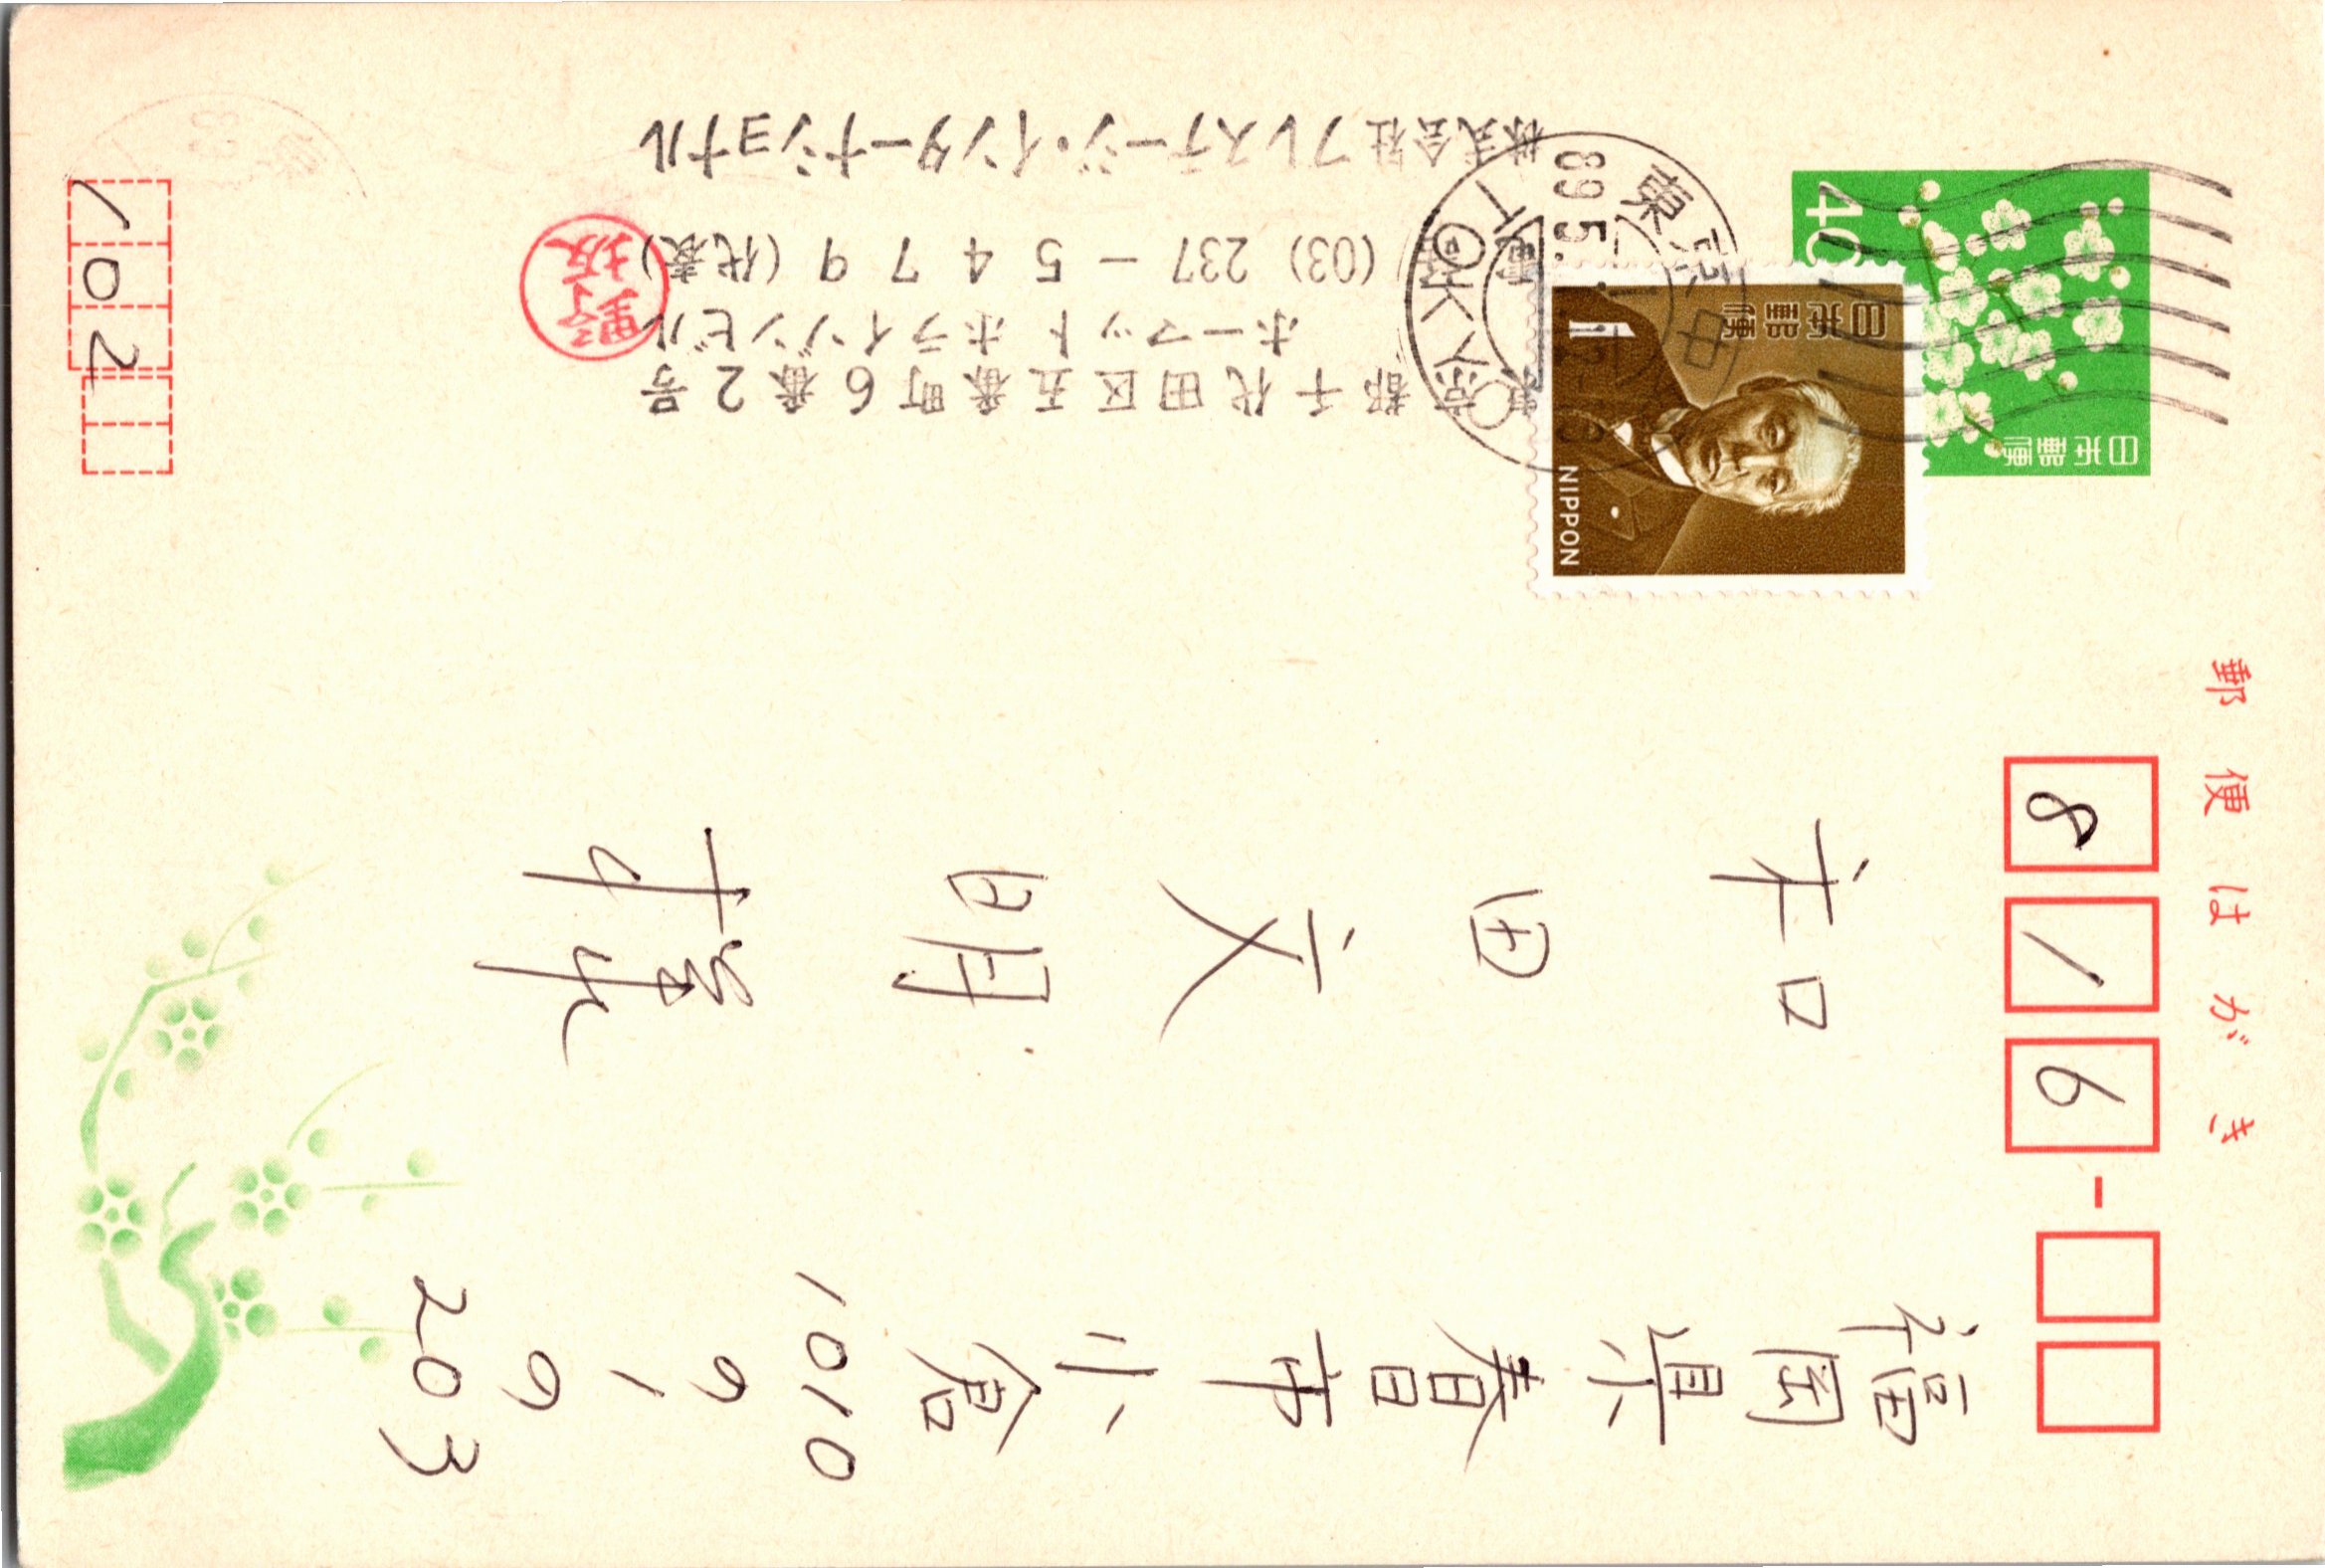 郵便はがき
816
福岡県春日市小倉
1010
9 1 9
203
和田文明様
日本郵便
40
日本郵便
1
NIPPON
東京中
89 5.
TOKYO
東京都千代田区五番町6番2号
ホーマットホライゾンビル
電話 (03) 237-5479 (代表)
株式会社プレステージ・インターナショナル
野坂
102